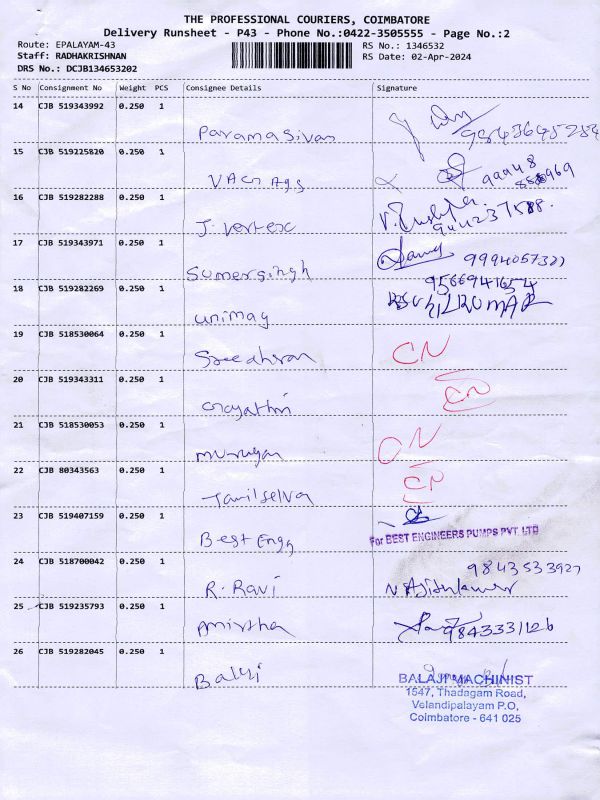 THE PROFESSIONAL COURIERS, COIMBATORE
Delivery Runsheet - P43 - Phone No.:0422-3505555 - Page No.:2
Route: EPALAYAM-43 RS No.: 1346532
Staff: RADHAKRISHNAN RS Date: 02-Apr-2024
DRS No.: DCJB134653202
S No Consignment No Weight PCS Consignee Details Signature
14 CJB 519343992 0.250 1
Paramasivan
15 CJB 519225820 0.250 1
16 CJB 519282288 0.250 1
J. Vertex
17 CJB 519343971 0.250 1
Sumersingh 9994057322
18 CJB 519282269 0.250 1 9566941654
unimag
19 CJB 518530064 0.250 1 CN
20 CJB 519343311 0.250 1 CN
Gayathri
21 CJB 518530053 0.250 1 CN
murugan
22 CJB 80343563 0.250 1 CN
Tamilselva
23 CJB 519407159 0.250 1
Best Engg For BEST ENGINEERS PUMPS PVT. LTD
24 CJB 518700042 0.250 1 9843533927
R. Ravi N Ajithkumar
25 CJB 519235793 0.250 1
Amirtha 9843331126
26 CJB 519282045 0.250 1
Balaji BALAJI MACHINIST
1547, Thadagam Road,
Velandipalayam P.O,
Coimbatore - 641 025